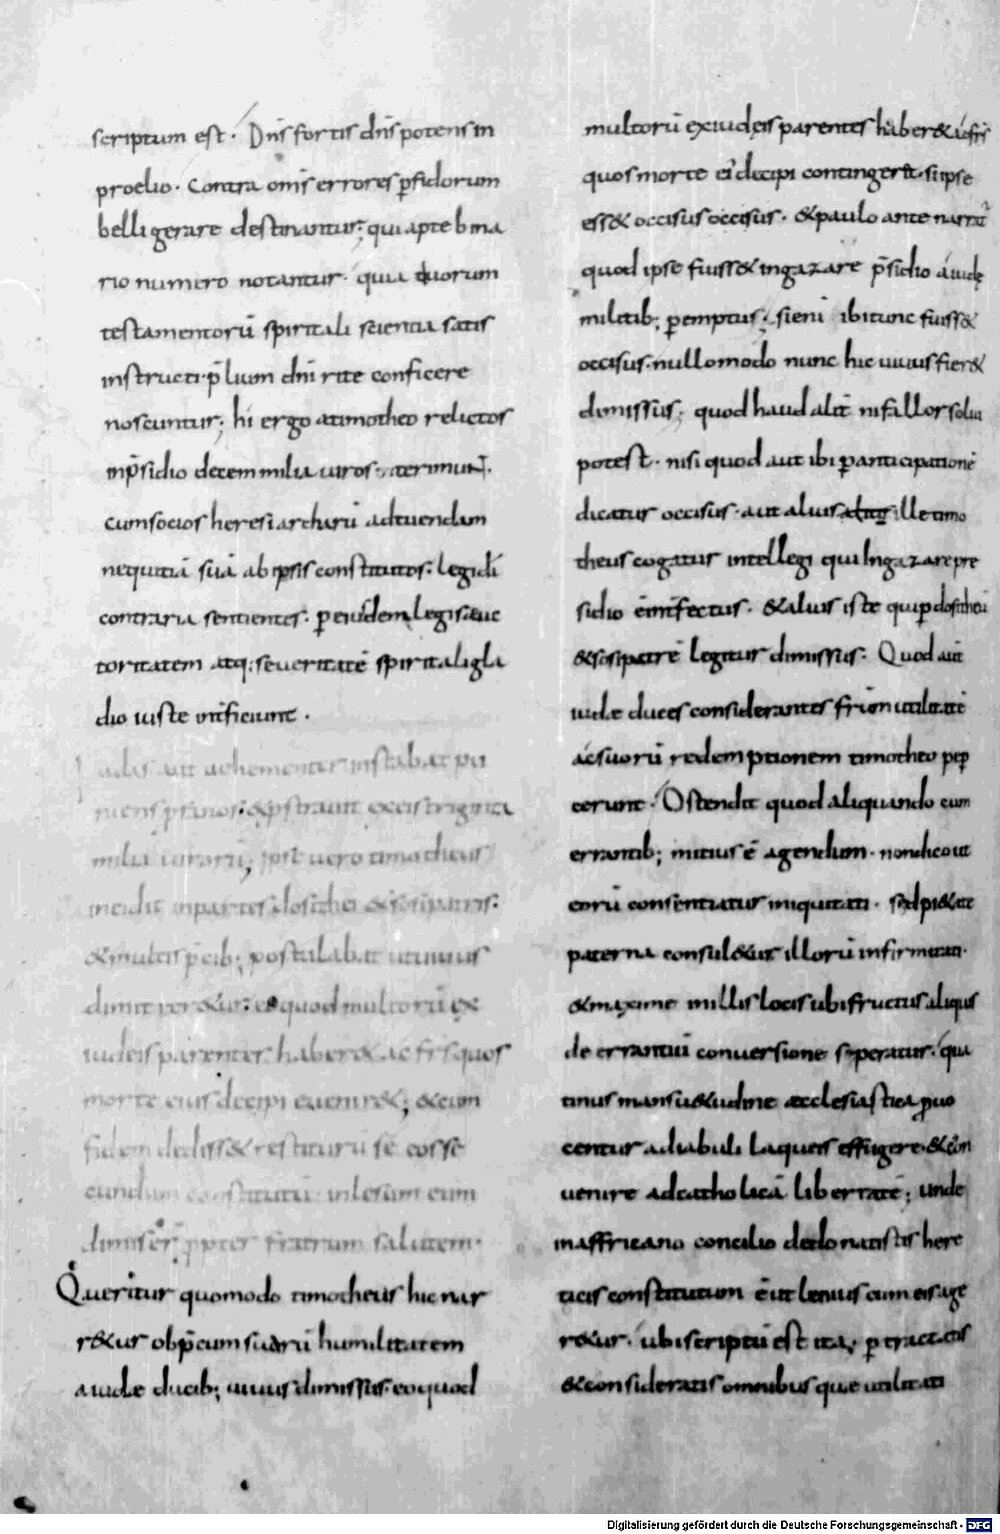 scriptum est. Dn̄s fortis dn̄s potens in
proelio. Contra om̄s errores p̄fidorum
belligerare destinantur; qui apte bina
rio numero notantur. quia duorum
testamentorū spiritali scientia satis
instructi. p̄lium dn̄i rite conficere
noscuntur; hi ergo a timotheo relictos
in p̄sidio decem milia viros interimunt.
cum socios heresiarcharū ad tuendam
nequitiā suā ab ipsis constitutos. legi dī
contraria sentientes. p eiusdem legis auc
toritatem atq; severitatē spiritali gla
dio iuste interficiunt.
iudas aut vehementer instabat pu
niens pfanos. & pstravit ex eis triginta
milia virorū; ipse vero timotheus
incidit in partes dosithei & sosipatris.
& multis p̄cib; postulabat ut vivus
dimitteretur. eo quod multorū ex
iudeis parentes haber& ac frīs quos
morte eius decipi evenir&; & cum
fidem dediss& restiturū se eos se
cundum constitutū. inlesum eum
dimiser̄ ppter fratrum salutem.
Queritur quomodo timotheus hic nar
r&ur ob p̄cum suarū humilitatem
a iudæ ducib; vivus dimissus. eo quod
multorū ex iudeis parentes haber& ac frīs
quos morte ei' decipi contingeret. si ipse
ess& occisus. & paulo ante narrat̄
quod ipse fuiss& in gazare p̄sidio a iudę
militib; pemptus; si eni ibi tunc fuiss&
occisus. nullo modo nunc hic vivus fier&
dimissus; quod haud alit̄ ni fallor solui
potest. nisi quod aut ibi p anticipationē
dicatur occisus. aut alius ille timo
theus cogatur intellegi qui in gazare pre
sidio ē interfectus. & alius iste qui p dositheū
& sosipatrē legitur dimissus. Quod aut̄
iudæ duces considerantes frūm utilitatē
ac suorū redemptionem timotheo pep
cerunt. Ostendit quod aliquando cum
errantib; mitius ē agendum. non dico ut
eorū consentiatur iniquitati. sed pi&ate
paterna consul&ur illorū infirmitati.
& maxime in illis locis ubi fructus aliquis
de errantiū conversione speratur. qua
tinus mansu&udine æcclesiastica puo
centur a diabuli laqueis effugere. & con
venire ad catholicā libertatē; unde
in affricano concilio de donatistis here
ticis constitutum ē ut lenius cum eis age
r&ur. ubi scriptū est ita; ptractatis
& consideratis omnibus que utilitati
Digitalisierung gefördert durch die Deutsche Forschungsgemeinschaft - DFG